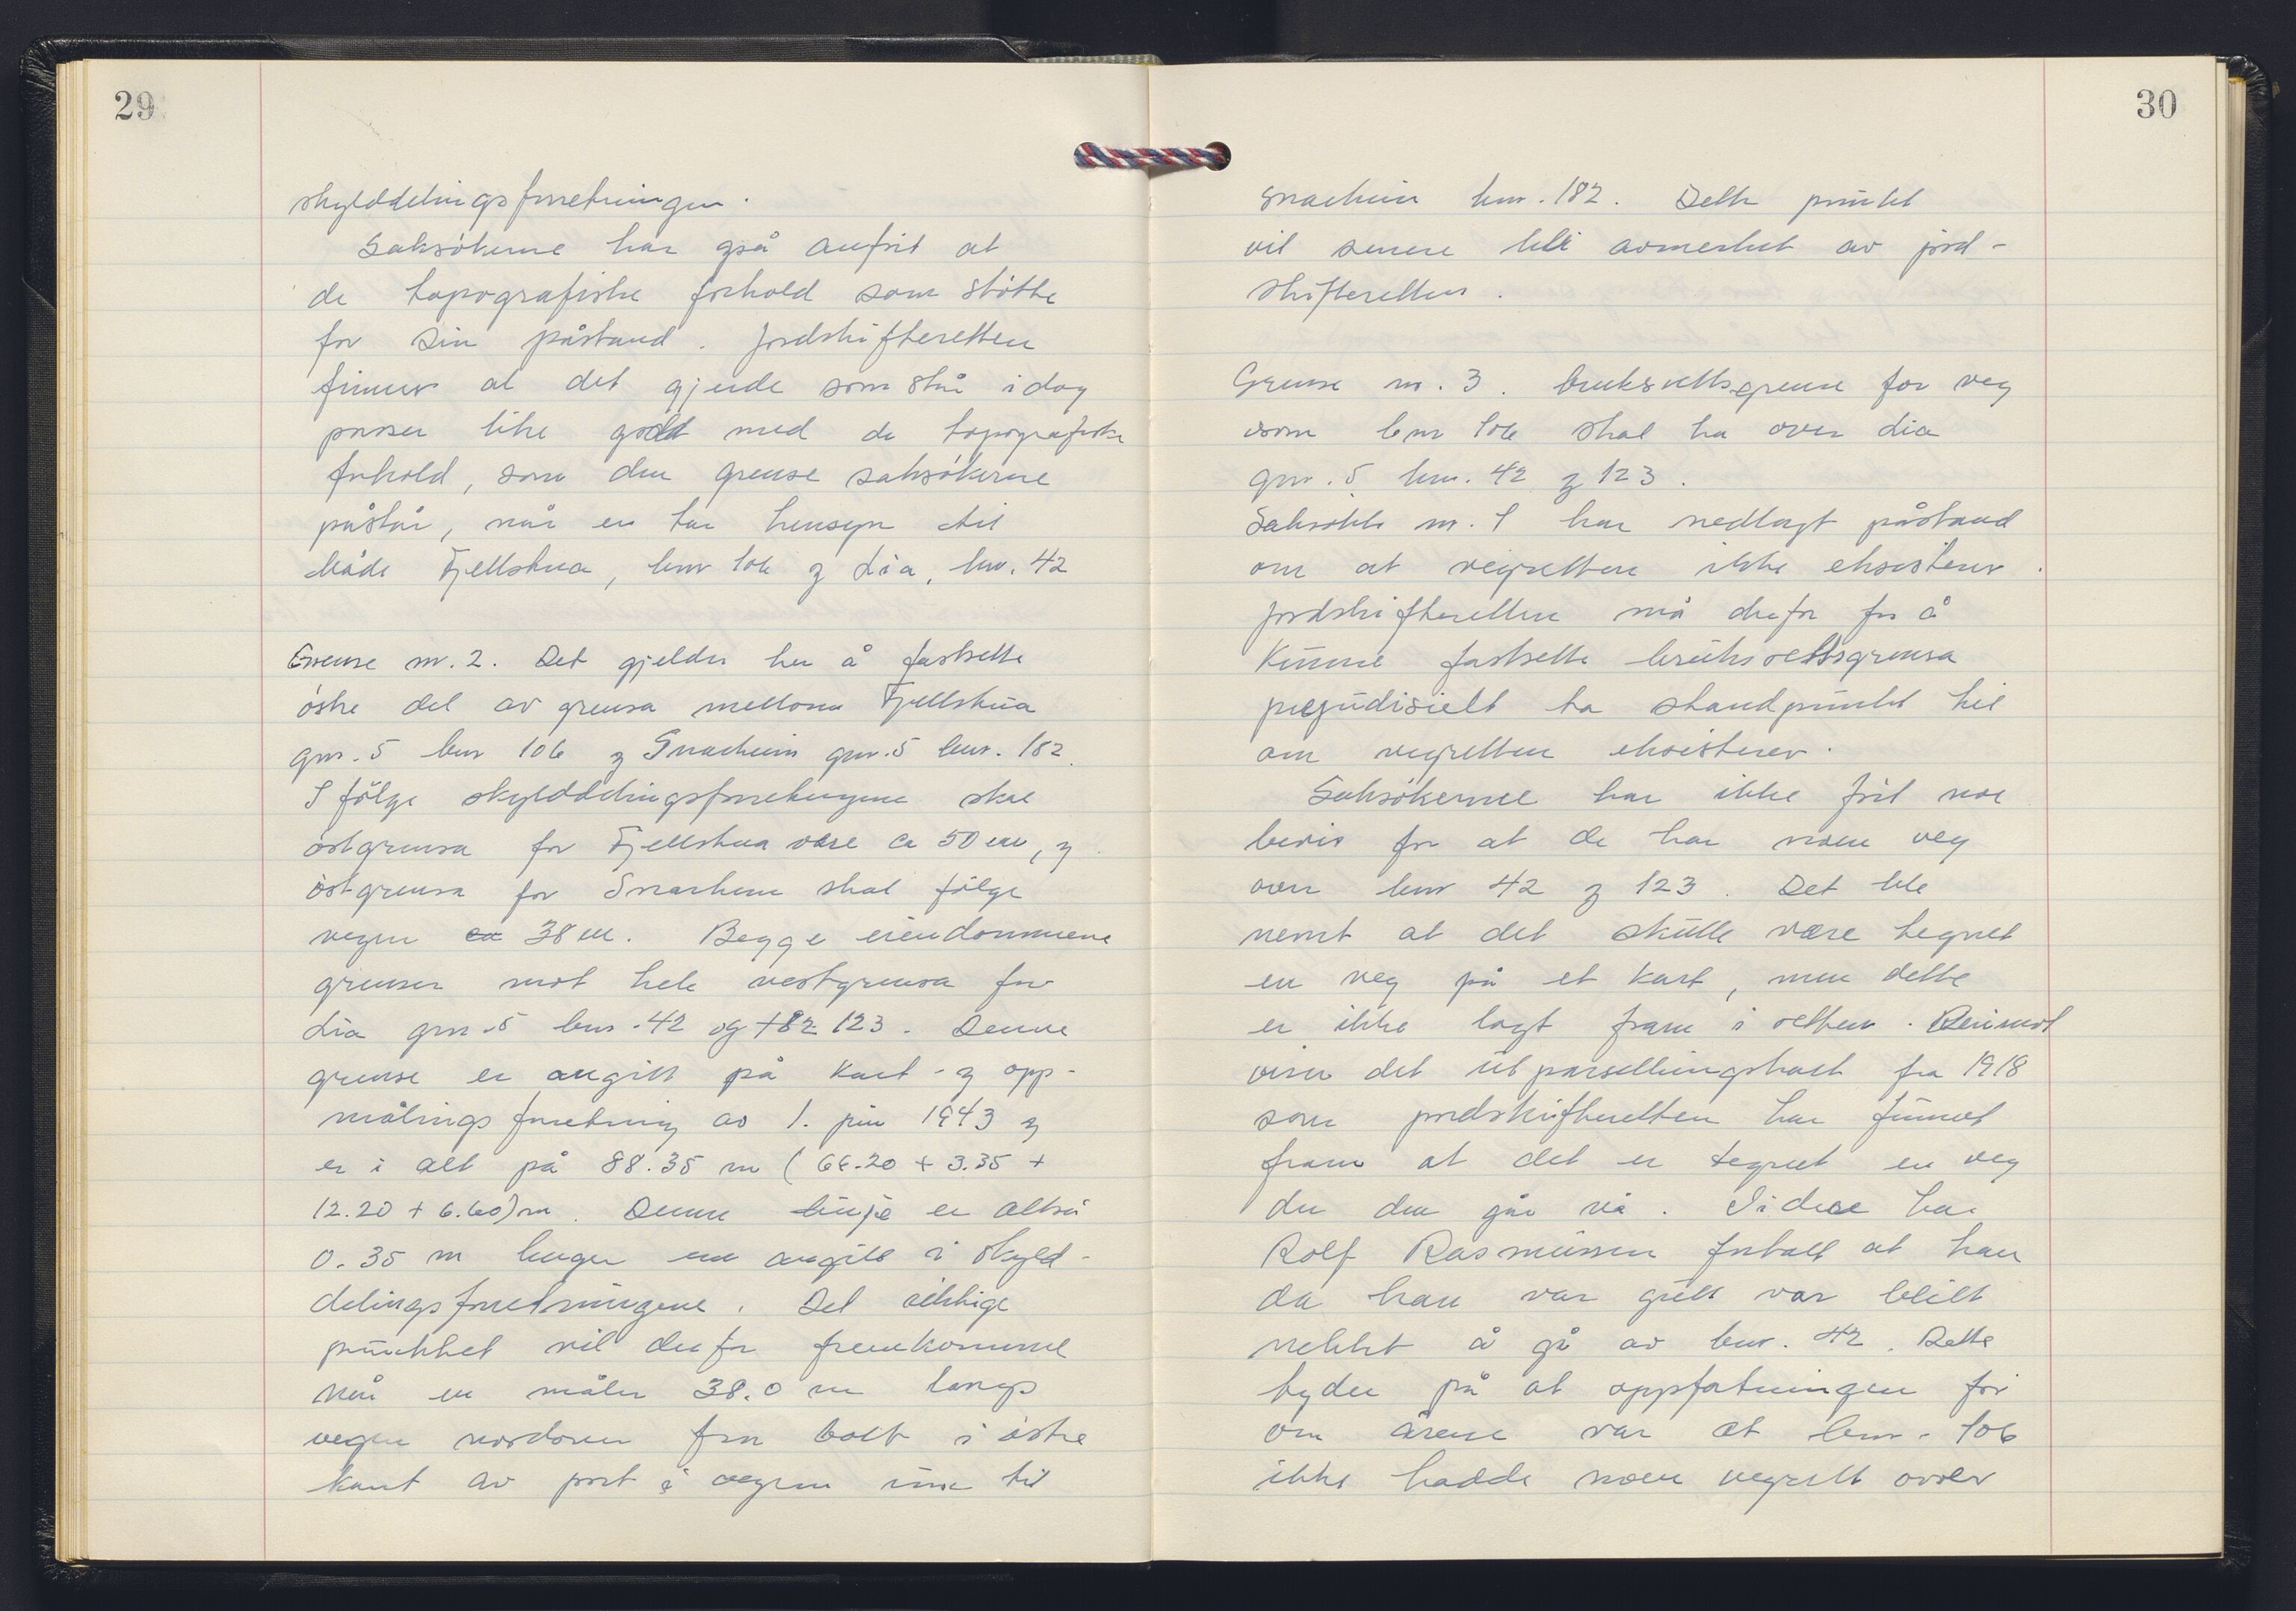 29
skylddelingsforretningen.
Saksökerne har også anfört at
de topografiske forhold som stötte
for sin påstand. Jordskifteretten
finner at det gjerde som står idag
passer like godt med de topografiske
forhold, som den grense saksökerne
påstår, når en tar hensyn til
både Fjellstua, bnr 106 og Lia, bnr. 42
Grense nr. 2. Det gjelder her å fastsette
östre del av grensa mellom Fjellstua
gnr. 5 bnr 106 og Snarheim gnr. 5 bnr. 182.
I fölge skylddelingsforretningene skal
östgrensa for Fjellstua være ca 50 m, og
östgrensa for Snarheim skal fölge
vegen ca 38 m. Begge eiendommene
grenser mot hele vestgrensa for
Lia gnr. 5 bnr. 42 og 182 123. Denne
grense er angitt på kart- og opp-
målingsforretning av 1. juni 1943 og
er i alt på 88.35 m (66.20 + 3.35 +
12.20 + 6.60) m. Denne linje er altså
0.35 m lenger enn angitt i skyld-
delingsforretningene. Det riktige
punktet vil derfor fremkomme
når en måler 38.0 m langs
vegen nordover fra bolt i östre
kant av port i vegen inn til
30
Snarheim bnr. 182. Dette punkt
vil senere bli avmerket av jord-
skifteretten.
Grense nr. 3. bruksrettsgrense for veg
som bnr 106 skal ha over Lia
gnr. 5 bnr. 42 og 123.
Saksökte nr. 1 har nedlagt påstand
om at vegretten ikke eksisterer.
Jordskifteretten må derfor for å
kunne fastsette bruksrettsgrensa
prejudisielt ta standpunkt til
om vegretten eksisterer.
Saksökerne har ikke fört noe
bevis for at de har noen veg
over bnr 42 og 123. Det ble
nevnt at det skulle være tegnet
en veg på et kart, men dette
er ikke lagt fram i retten. Derimot
viser det utparsellingskart fra 1918
som jordskifteretten har funnet
fram at det er tegnet en veg
der den går nå. Videre har
Rolf Rasmussen fortalt at han
da han var gutt var blitt
nektet å gå av bnr. 42. Dette
tyder på at oppfatningen for
om årene var at bnr. 106
ikke hadde noen vegrett over